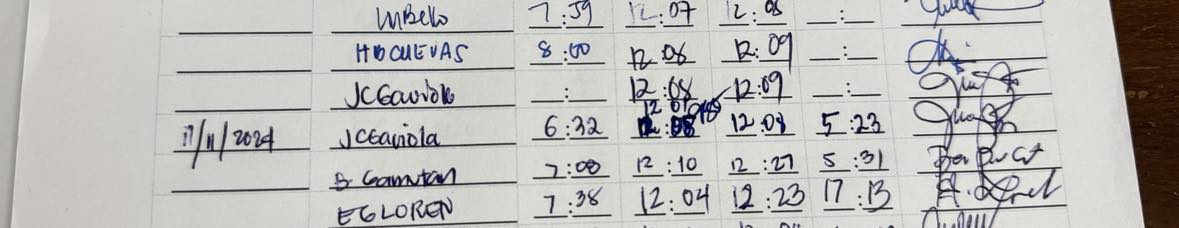 MBello 7:59 12:07 12:08 __:__
HDCUEVAS 8:00 12:08 12:09 __:__
JCGaviola __:__ 12:08 12:09 __:__
12:07
11/11/2024 JCGaviola 6:32 12:08 5:23
B Gamutan 7:00 12:10 12:27 5:31
EGLOREN 7:38 12:04 12:23 17:13